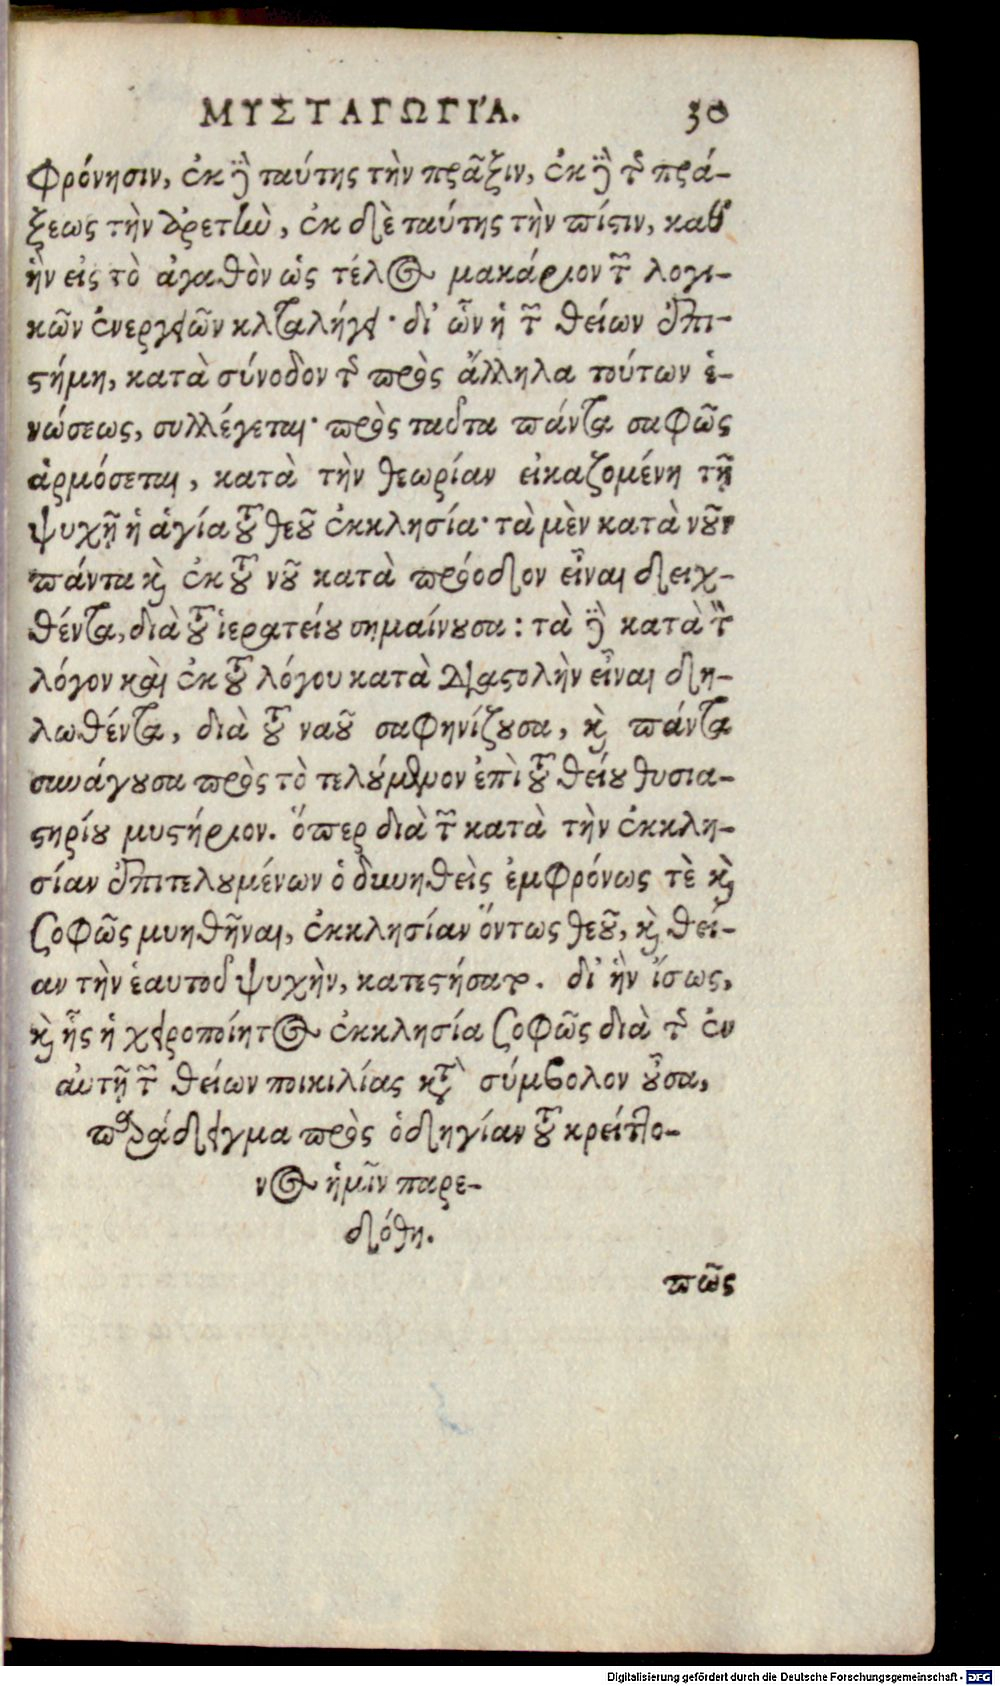 ΜΥΣΤΑΓΩΓΙ'Α. 30
φρόνησιν, ἐκ δὲ ταύτης τὴν πρᾶξιν, ἐκ δὲ τῆς πρά-
ξεως τὴν ἀρετὴν, ἐκ δὲ ταύτης τὴν πίςιν, καθ'
ἣν εἰς τὸ ἀγαθὸν ὡς τέλος μακάριον τῶν λογι-
κῶν ἐνεργειῶν καταλήγει· δι' ὧν ἡ τῶν θείων ἐπι-
ςήμη, κατὰ σύνοδον τῆς πρὸς ἄλληλα τούτων ἑ-
νώσεως, συλλέγεται· πρὸς ταῦτα πάντα σαφῶς
ἁρμόσεται, κατὰ τὴν θεωρίαν εἰκαζομένη τῇ
ψυχῇ ἡ ἁγία τοῦ θεοῦ ἐκκλησία· τὰ μὲν κατὰ νοῦν
πάντα καὶ ἐκ τοῦ νοῦ κατὰ πρόοδον εἶναι δειχ-
θέντα, διὰ τοῦ ἱερατείου σημαίνουσα: τὰ δὲ κατὰ τὸν
λόγον καὶ ἐκ τοῦ λόγου κατὰ διαςολὴν εἶναι δη-
λωθέντα, διὰ τοῦ ναοῦ σαφηνίζουσα, καὶ πάντα
συνάγουσα πρὸς τὸ τελούμενον ἐπὶ τοῦ θείου θυσια-
ςηρίου μυςήριον. ὅπερ διὰ τῶν κατὰ τὴν ἐκκλη-
σίαν ἐπιτελουμένων ὁ δυνηθεὶς ἐμφρόνως τὲ καὶ
σοφῶς μυηθῆναι, ἐκκλησίαν ὄντως θεοῦ, καὶ θεί-
αν τὴν ἑαυτοῦ ψυχὴν, κατεςήσατο. δι' ἣν ἴσως,
καὶ ἧς ἡ χειροποίητος ἐκκλησία σοφῶς διὰ τῆς ἐν
αὐτῇ τῶν θείων ποικιλίας κατὰ σύμβολον οὖσα,
παράδειγμα πρὸς ὁδηγίαν τοῦ κρείττο-
νος ἡμῖν παρε-
δόθη.
πῶς
Digitalisierung gefördert durch die Deutsche Forschungsgemeinschaft - DFG